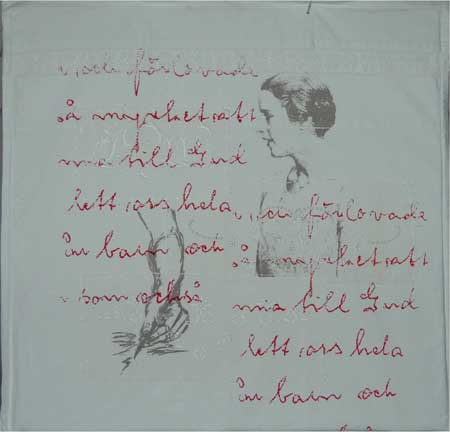 och förlovade
så mycket att
mia till Gud
lett oss hela
bain och
som också
och förlovade
så mycket att
mia till Gud
lett oss hela
bain och